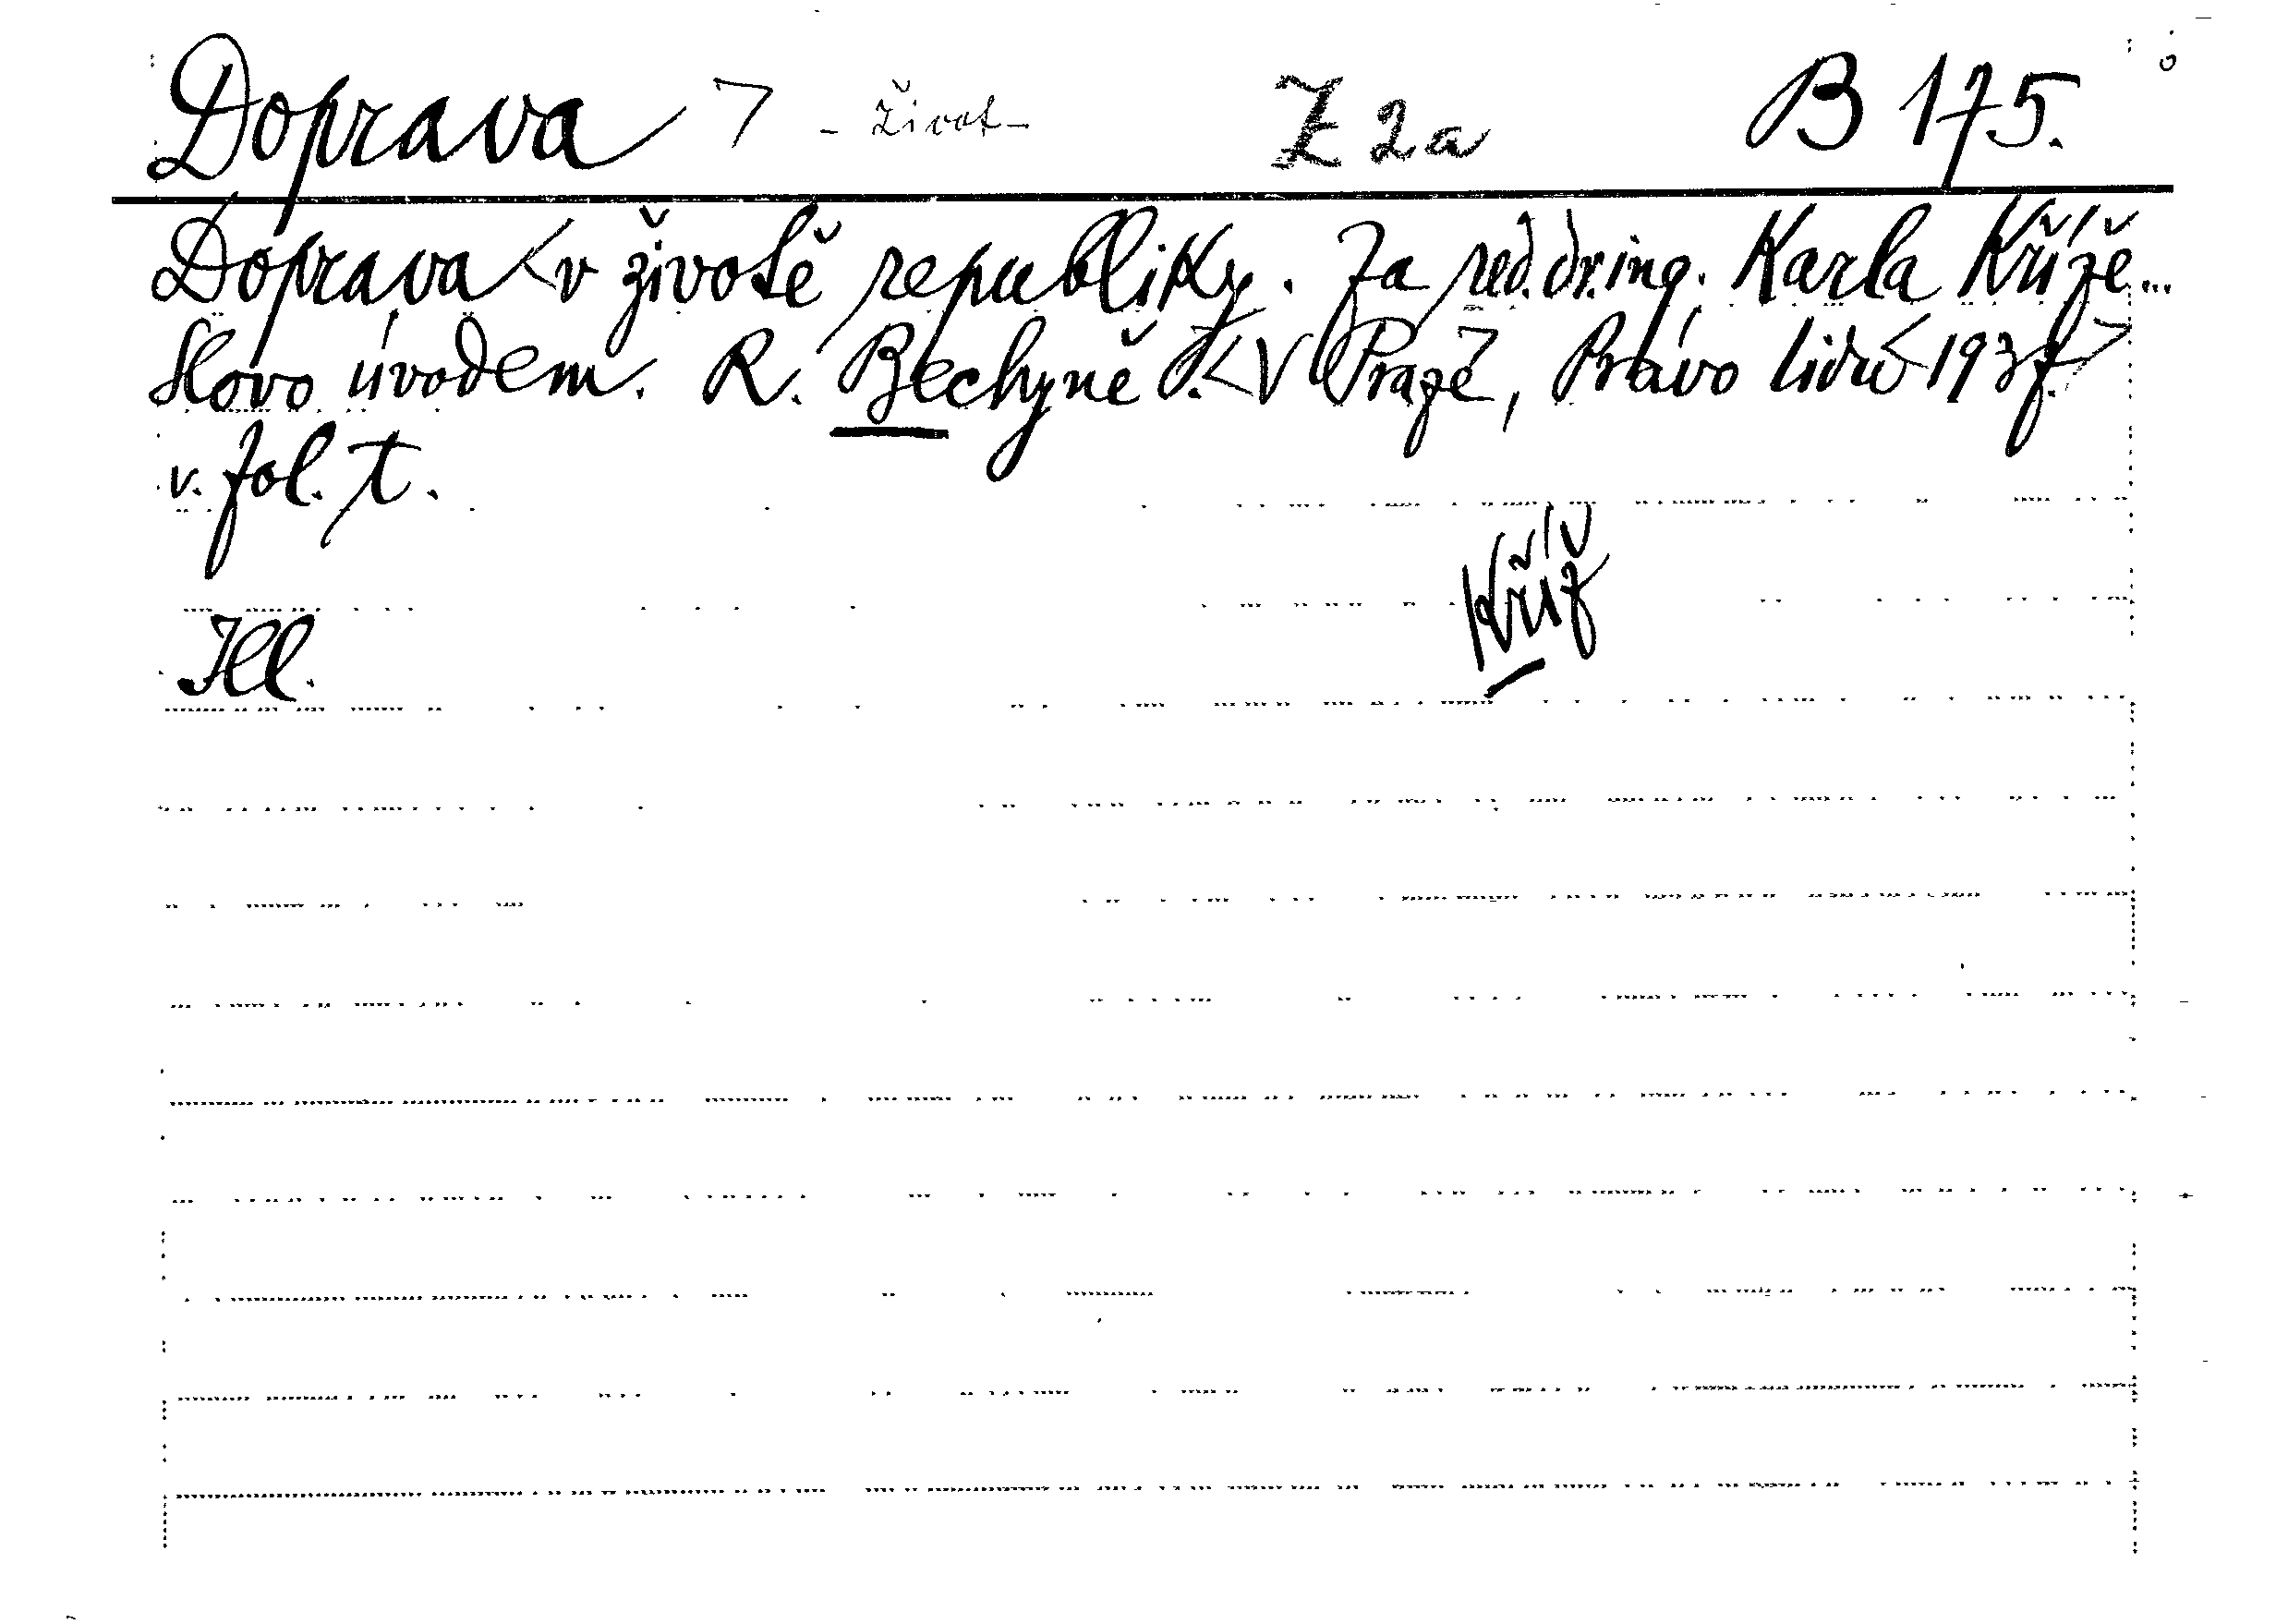 Doprava > - život - Z 2a B 175.
Doprava < v životě republiky. Za red. dr. ing. Karla Kříže...
Slovo úvodem. R. Bechyně. < V Praze, Právo lidu 1937. >
v. fol. t.
Kříž
Ill.